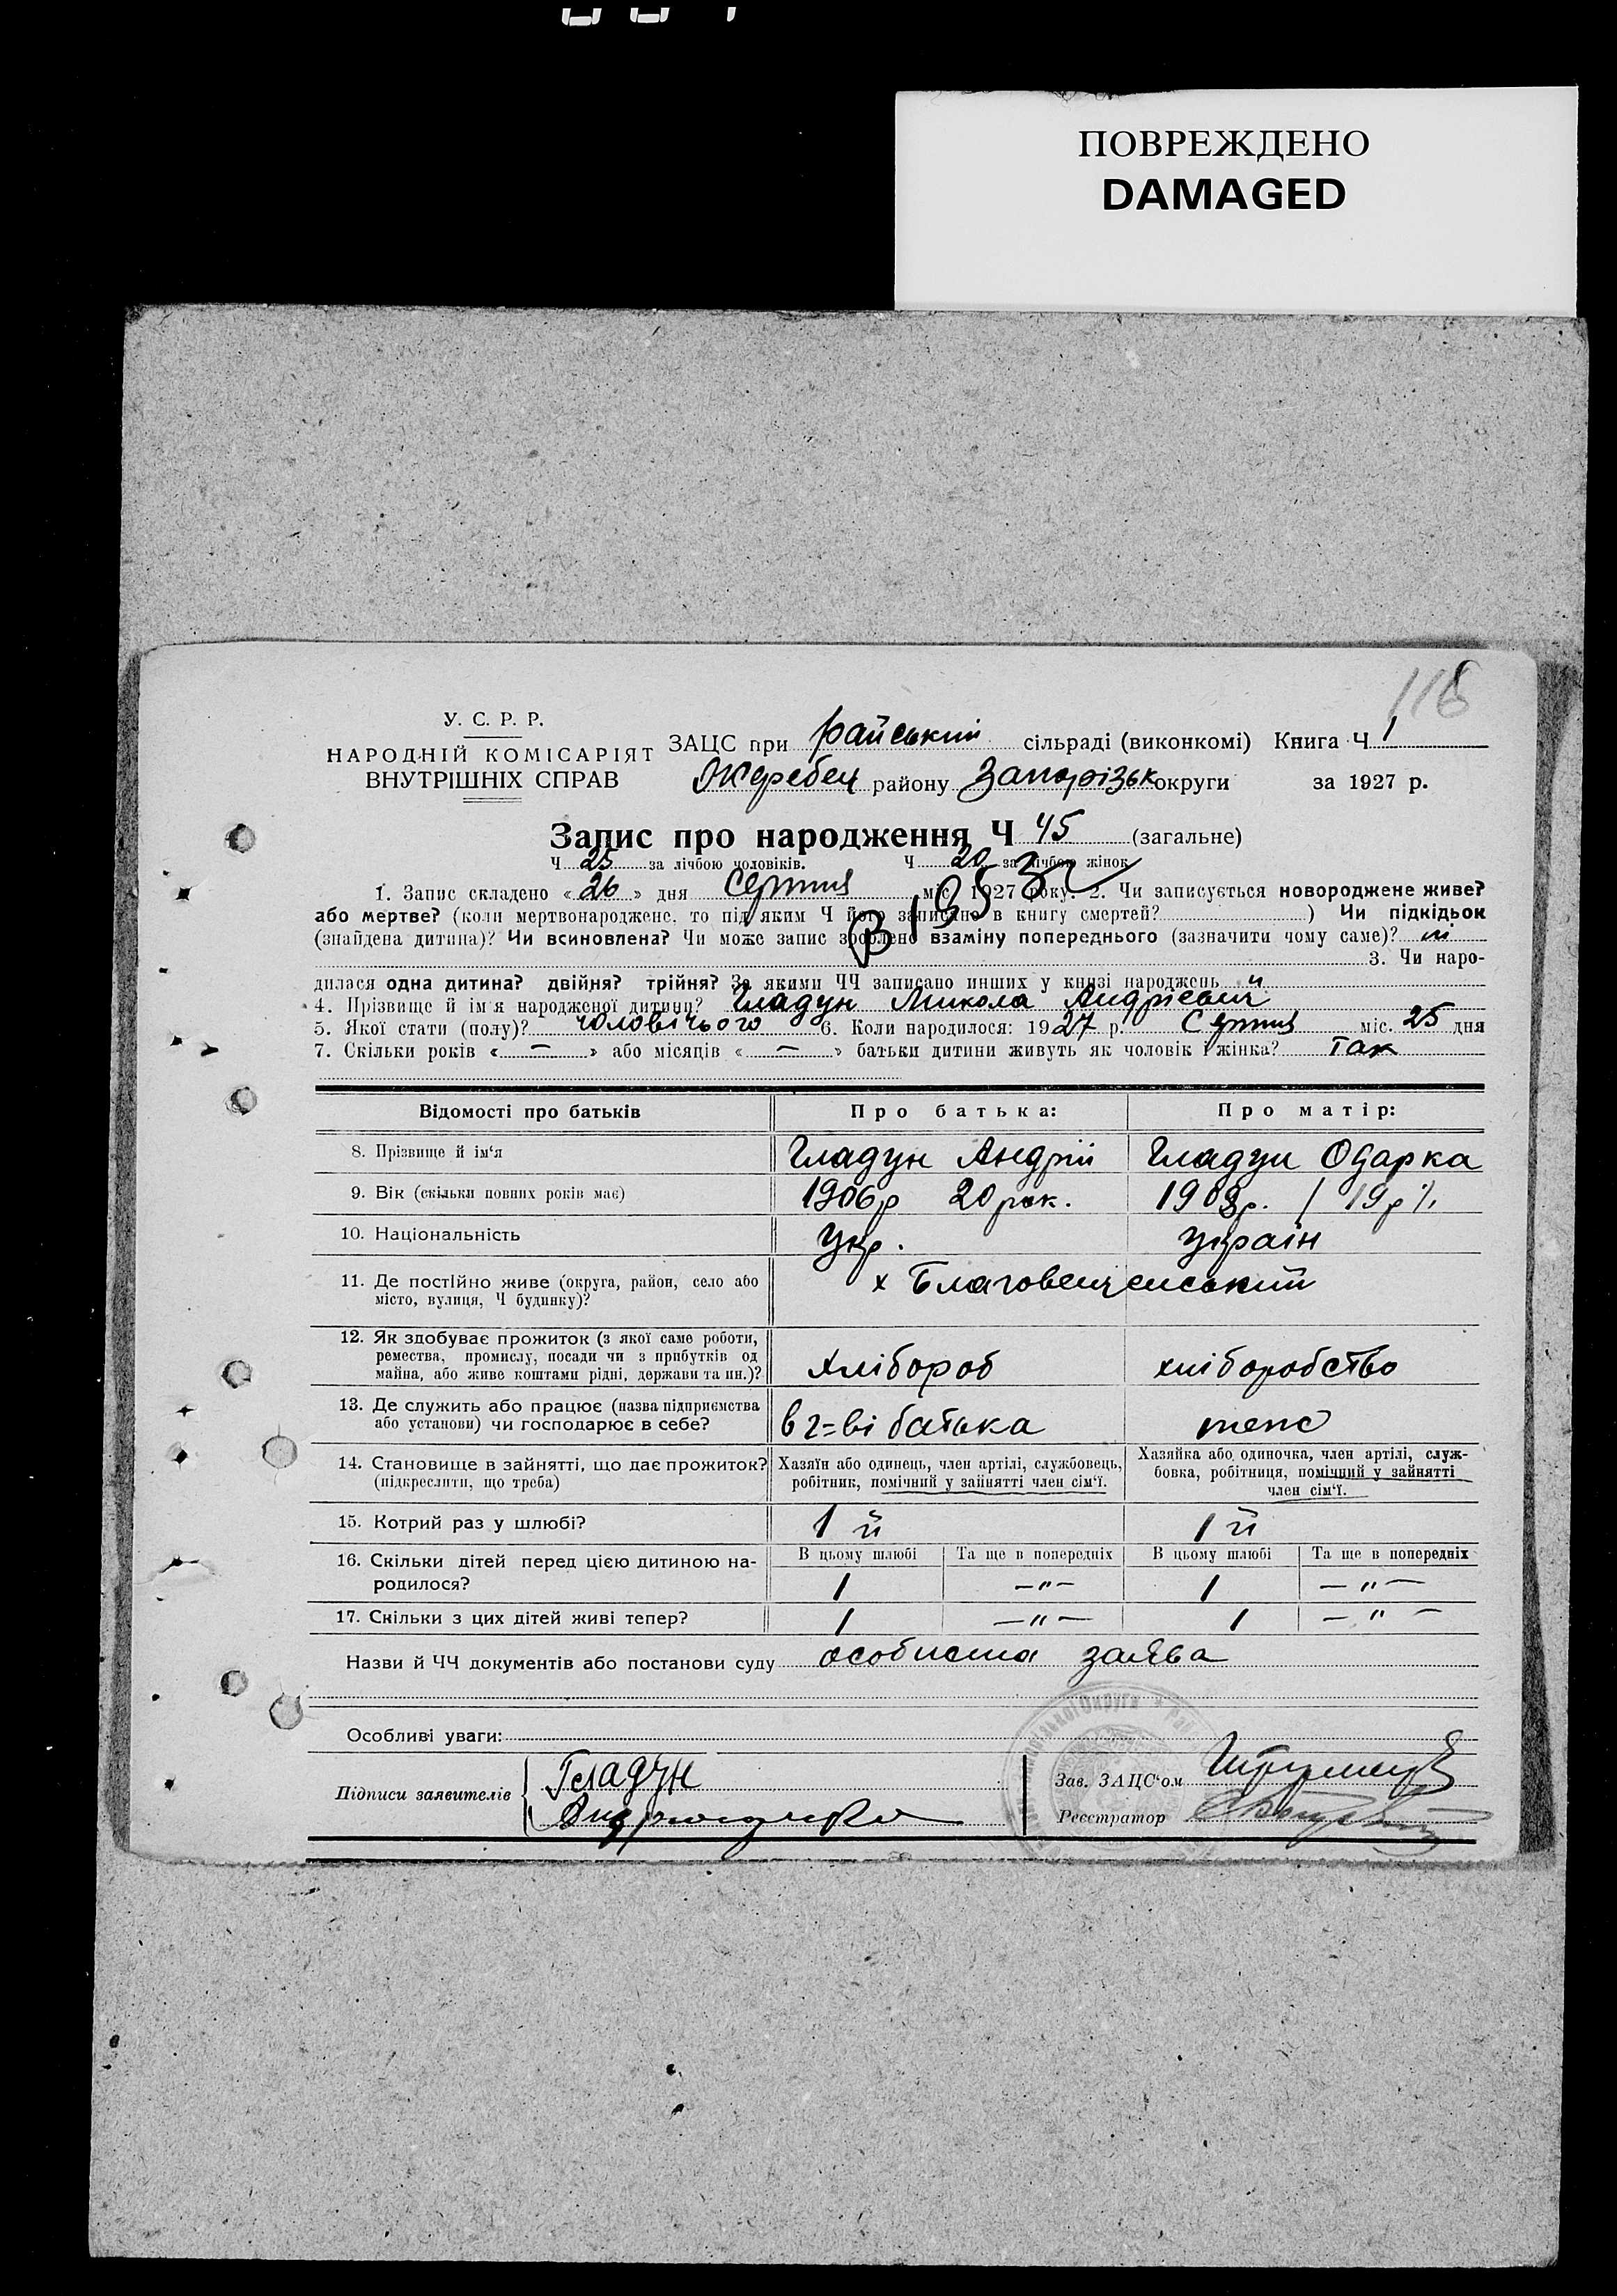 ПОВРЕЖДЕНО
DAMAGED
116
У. С. Р. Р.
НАРОДНІЙ КОМІСАРІЯТ
ВНУТРІШНІХ СПРАВ
ЗАЦС при Райський сільраді (виконкомі) Книга Ч 1
Жеребец району Запорізьк округи за 1927 р.
Запис про народження Ч 45 (загальне)
Ч 25 за лічбою чоловіків. Ч 20 за лічбою жінок
1. Запис складено «26» дня Серпня міс. 1927 року. 2. Чи записується новороджене живе?
або мертве? (коли мертвонароджене, то під яким Ч його записано в книгу смертей? ) Чи підкідьок
(знайдена дитина)? Чи всиновлена? Чи може запис зроблено взаміну попереднього (зазначити чому саме)? ні
3. Чи наро-
дилася одна дитина? двійня? трійня? За якими ЧЧ записано инших у книзі народжень
4. Прізвище й ім'я народженої дитини? Гладун Микола Андрієвич
5. Якої стати (полу)? чоловічього 6. Коли народилося: 1927 р. Серпня міс. 25 дня
7. Скільки років « — » або місяців « — » батьки дитини живуть як чоловік і жінка? так
Відомості про батьків Про батька: Про матір:
8. Прізвище й ім'я Гладун Андрій Гладун Одарка
9. Вік (скільки повних років має) 1906р 20 рок. 1908р. / 19 р
10. Національність Укр. Україн
11. Де постійно живе (округа, район, село або
місто, вулиця, Ч будинку)? х Благовещенський
12. Як здобуває прожиток (з якої саме роботи,
ремества, промислу, посади чи з прибутків од
майна, або живе коштами рідні, держави та ин.)? Хлібороб хліборобство
13. Де служить або працює (назва підприємства
або установи) чи господарює в себе? в г=ві батька теж
14. Становище в зайнятті, що дає прожиток?
(підкреслити, що треба)
Хазяїн або одинець, член артілі, службовець,
робітник, помічний у зайнятті член сім'ї.
Хазяйка або одиночка, член артілі, служ-
бовка, робітниця, помічний у зайнятті
член сім'ї.
15. Котрий раз у шлюбі? 1 й 1 й
16. Скільки дітей перед цією дитиною на-
родилося?
В цьому шлюбі Та ще в попередніх В цьому шлюбі Та ще в попередніх
1 —"— 1 —"—
17. Скільки з цих дітей живі тепер? 1 —"— 1 —"—
Назви й ЧЧ документів або постанови суду особиста заява
Особливі уваги:
Підписи заявителів Гладун
Зав. ЗАЦС'ом
Реєстратор